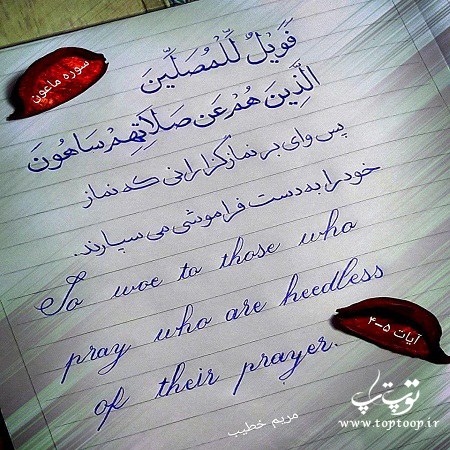 سوره ماعون
فَوَيْلٌ لِّلْمُصَلِّينَ
الَّذِينَ هُمْ عَن صَلَاتِهِمْ سَاهُونَ
پس وای بر نمازگزارانی که نماز
خود را به دست فراموشی می سپارند.
So woe to those who
pray who are heedless
of their prayer.
آیات ۵-۴
مریم خطیب
توپ تاپ
www.toptoop.ir